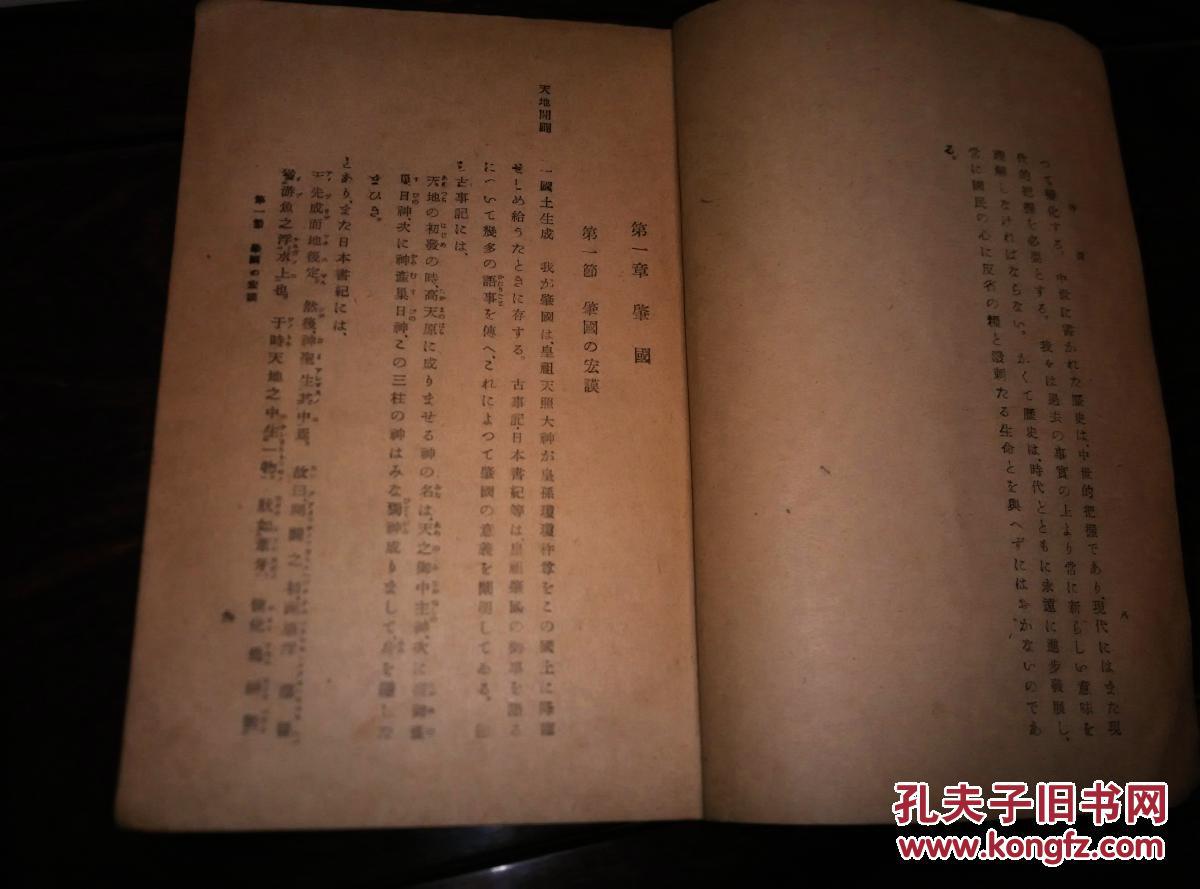 八
つて變化する。中世に書かれた歷史は、中世的把握であり、現代にはまた現
代的把握を必要とする。我々は過去の事實の上より常に新らしい意味を
理解しなければならない。かくて歷史は、時代とともに永遠に進步發展し、
常に國民の心に反省の糧と潑剌たる生命とを與へずにはおかないのであ
る。
第一章 肇國
第一節 肇國の宏謨
天地開闢
一國土生成 我が肇國は、皇祖天照大神が皇孫瓊瓊杵尊をこの國土に降臨
せしめ給うたときに存する。古事記・日本書紀等は、皇祖肇國の御事を語る
について幾多の語事を傳へ、これによつて肇國の意義を闡明してゐる。
古事記には、
天地の初發の時、高天原に成りませる神の名は、天之御中主神、次に
巢日神、次に神產巢日神、この三柱の神はみな獨神成りまして、身を隱し
まひき。
とあり、また日本書紀には、
天先成而地後定。然後、神聖生其中焉。故曰、開闢之初、
游魚之浮水上也。于時天地之中生一物。狀如葦牙。
第一節 肇國の宏謨
九